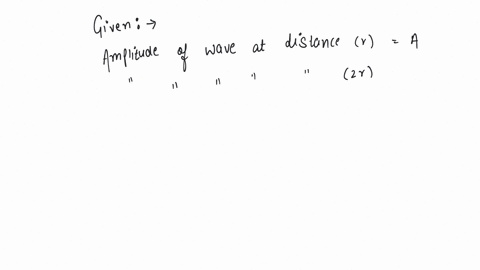 Given:→
Amplitude of wave at distance (r) = A
" " " " " (2r)